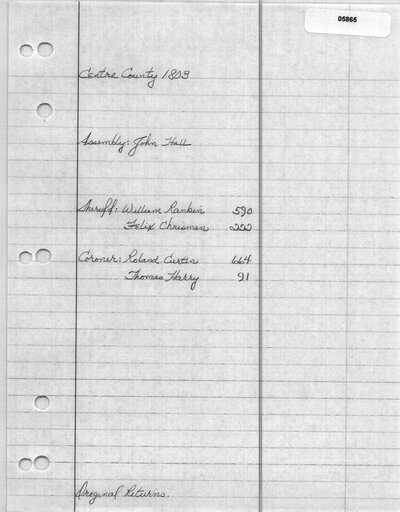 05865
Centre County 1803
Assembly: John Hall
Sheriff: William Rankin 590
Felix Chrisman 222
Coroner: Roland Curtin 664
Thomas Harry 91
Original Returns.